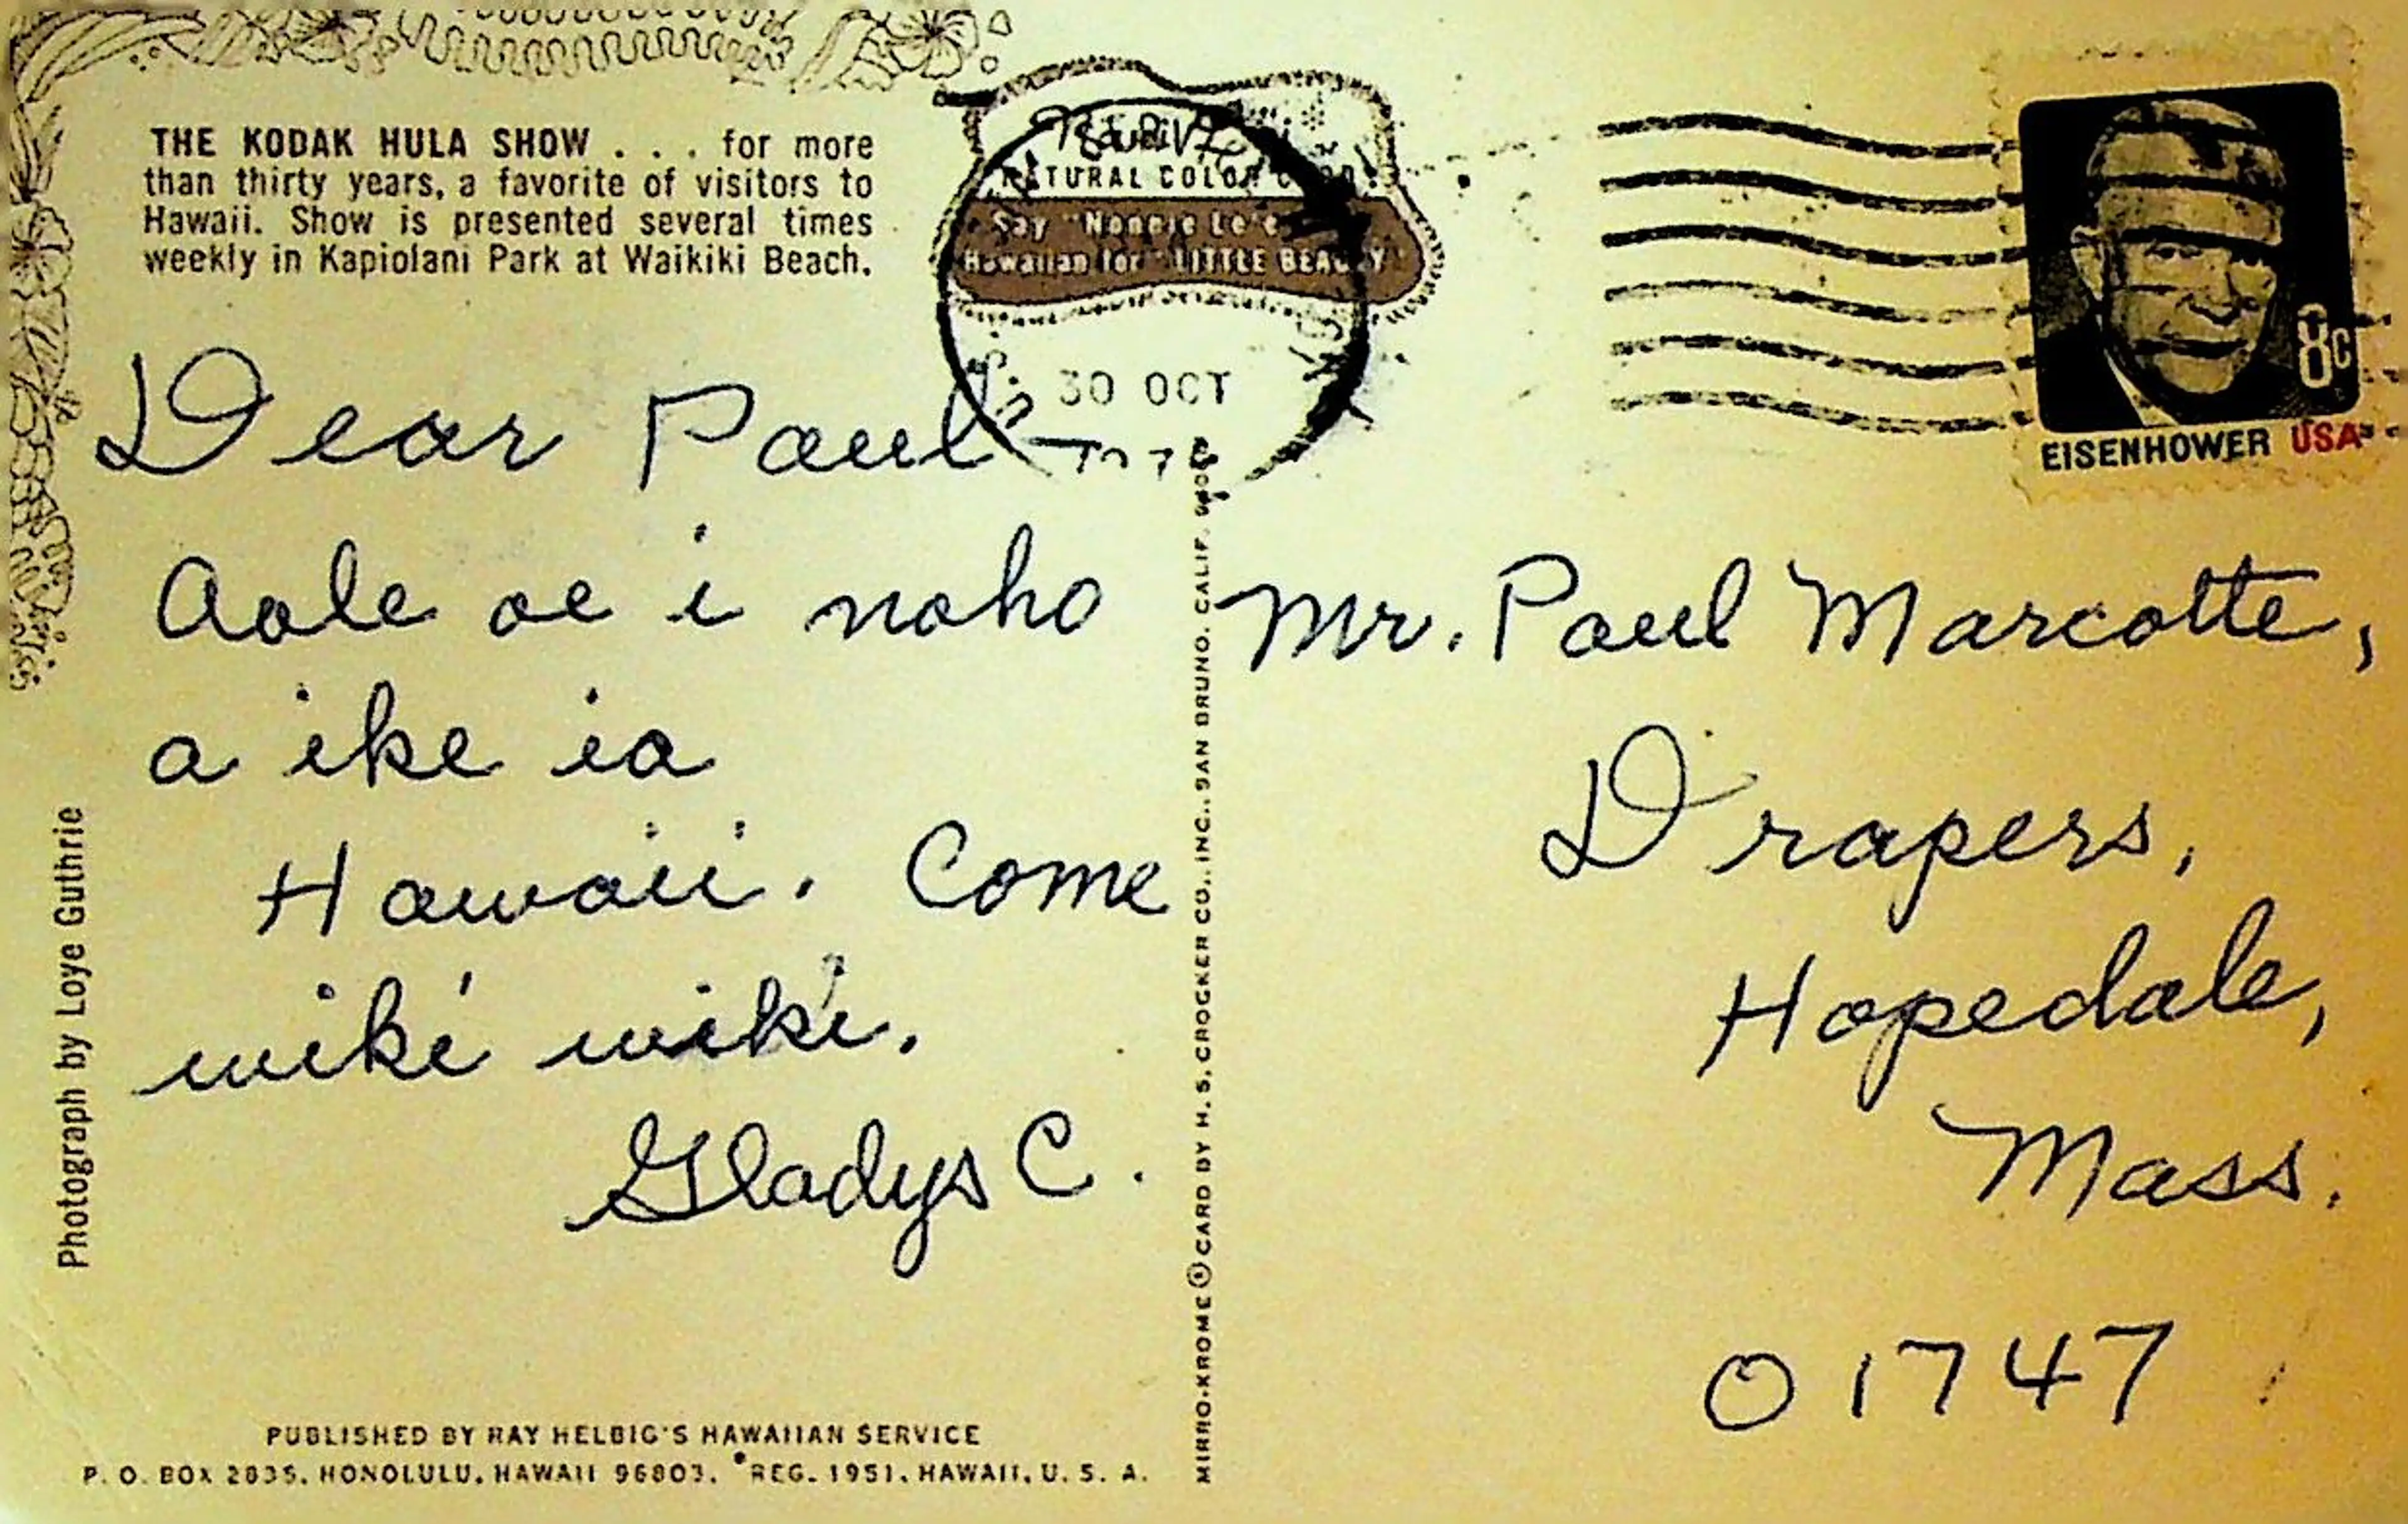 THE KODAK HULA SHOW . . . for more
than thirty years, a favorite of visitors to
Hawaii. Show is presented several times
weekly in Kapiolani Park at Waikiki Beach.
NATURAL COLOR CARD
Say "Nonnie Le'e"
Hawaiian for "LITTLE BEAUTY"
30 OCT
8c
EISENHOWER USA
Dear Paul
Aole oe i noho
a ike ia
Hawaii. Come
wiki wiki.
Gladys C.
Mr. Paul Marcotte,
Drapers,
Hopedale,
Mass.
01747
Photograph by Loye Guthrie
MIRRO-KROME ® CARD BY H. S. CROCKER CO., INC., SAN BRUNO, CALIF.
PUBLISHED BY RAY HELBIG'S HAWAIIAN SERVICE
P. O. BOX 2835, HONOLULU, HAWAII 96803. REG. 1951, HAWAII, U. S. A.